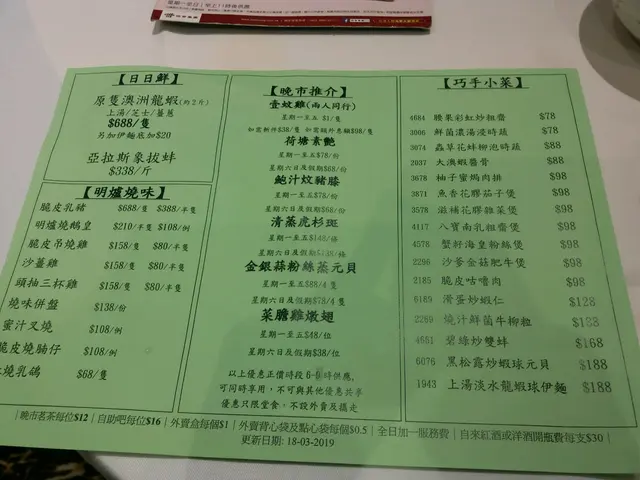 【日日鮮】
原隻澳洲龍蝦(約2斤)
上湯/芝士/薑蔥
$688/隻
另加伊麵底加$20
亞拉斯象拔蚌
$338/斤
【明爐燒味】
脆皮乳豬 $688/隻 $388/半隻
明爐燒鵝皇 $210/半隻 $108/例
脆皮吊燒雞 $158/隻 $80/半隻
沙薑雞 $158/隻 $80/半隻
頭抽三杯雞 $158/隻 $80/半隻
燒味併盤 $138/份
蜜汁叉燒 $108/例
脆皮燒腩仔 $108/例
燒乳鴿 $68/隻
【晚市推介】
壹蚊雞(兩人同行)
星期一至五 $1/隻
如需斬件$38/隻 如需額外惠顧$98/隻
荷塘素艷
星期一至五$78/份
星期六日及假期$68/份
鮑汁炆豬膝
星期一至五$78/份
星期六日及假期$68/份
清蒸虎杉斑
星期一至五$148/條
星期六日及假期/條
金銀蒜粉絲蒸元貝
星期一至五$88/4隻
星期六日及假期$78/4隻
菜膽雞燉翅
星期一至五$48/位
星期六日及假期$38/位
以上優惠正價時段6-時供應,
可同時享用,不可與其他優惠共享
優惠只限堂食,不設外賣及攜走
【巧手小菜】
4684 腰果彩虹炒粗齋 $78
3006 鮮菌濃湯浸時蔬 $78
3074 蟲草花蚌柳泡時蔬 $88
2037 大澳蝦醬骨 $88
3678 柚子蜜焗肉排 $98
3871 魚香花膠茄子煲 $98
3578 滋補花膠雜菜煲 $98
4117 八寶南乳粗齋煲 $98
4578 蟹籽海皇粉絲煲 $98
4296 沙爹金菇肥牛煲 $98
2185 脆皮咕嚕肉 $98
6189 滑蛋炒蝦仁 $128
2269 燒汁鮮菌牛柳粒 $138
4651 碧綠炒雙蚌 $168
6076 黑松露炒蝦球元貝 $188
1943 上湯淡水龍蝦球伊麵 $188
|晚市茗茶每位$12|自助吧每位$16|外賣盒每個$1|外賣背心袋及點心袋每個$0.5|全日加一服務費|自來紅酒或洋酒開瓶費每支$30|
更新日期: 18-03-2019